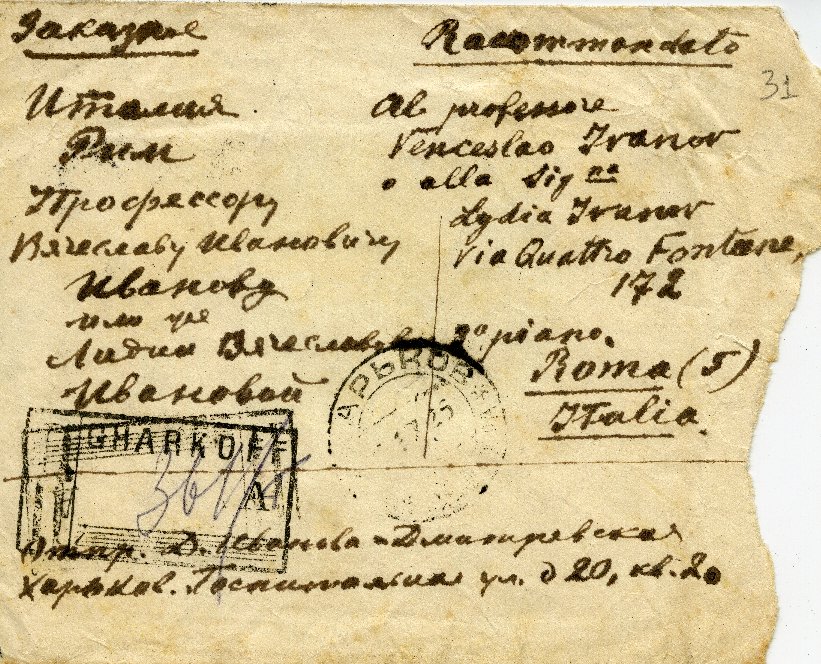 Заказное
Racommandato
31
Италия
Рим
Профессору
Вячеславу Ивановичу
Иванову
или же
Лидии Вячеславовне
Ивановой
Al professore
Venceslao Ivanov
o alla Sig na
Lydia Ivanov
Via Quattro Fontane,
172
2º piano.
Roma (5)
Italia.
ХАРЬКОВ
GHARKOFF
A
Отпр. Д. Иванова-Дмитревская
Харьков. Госпитальная ул. д 20, кв. 2.